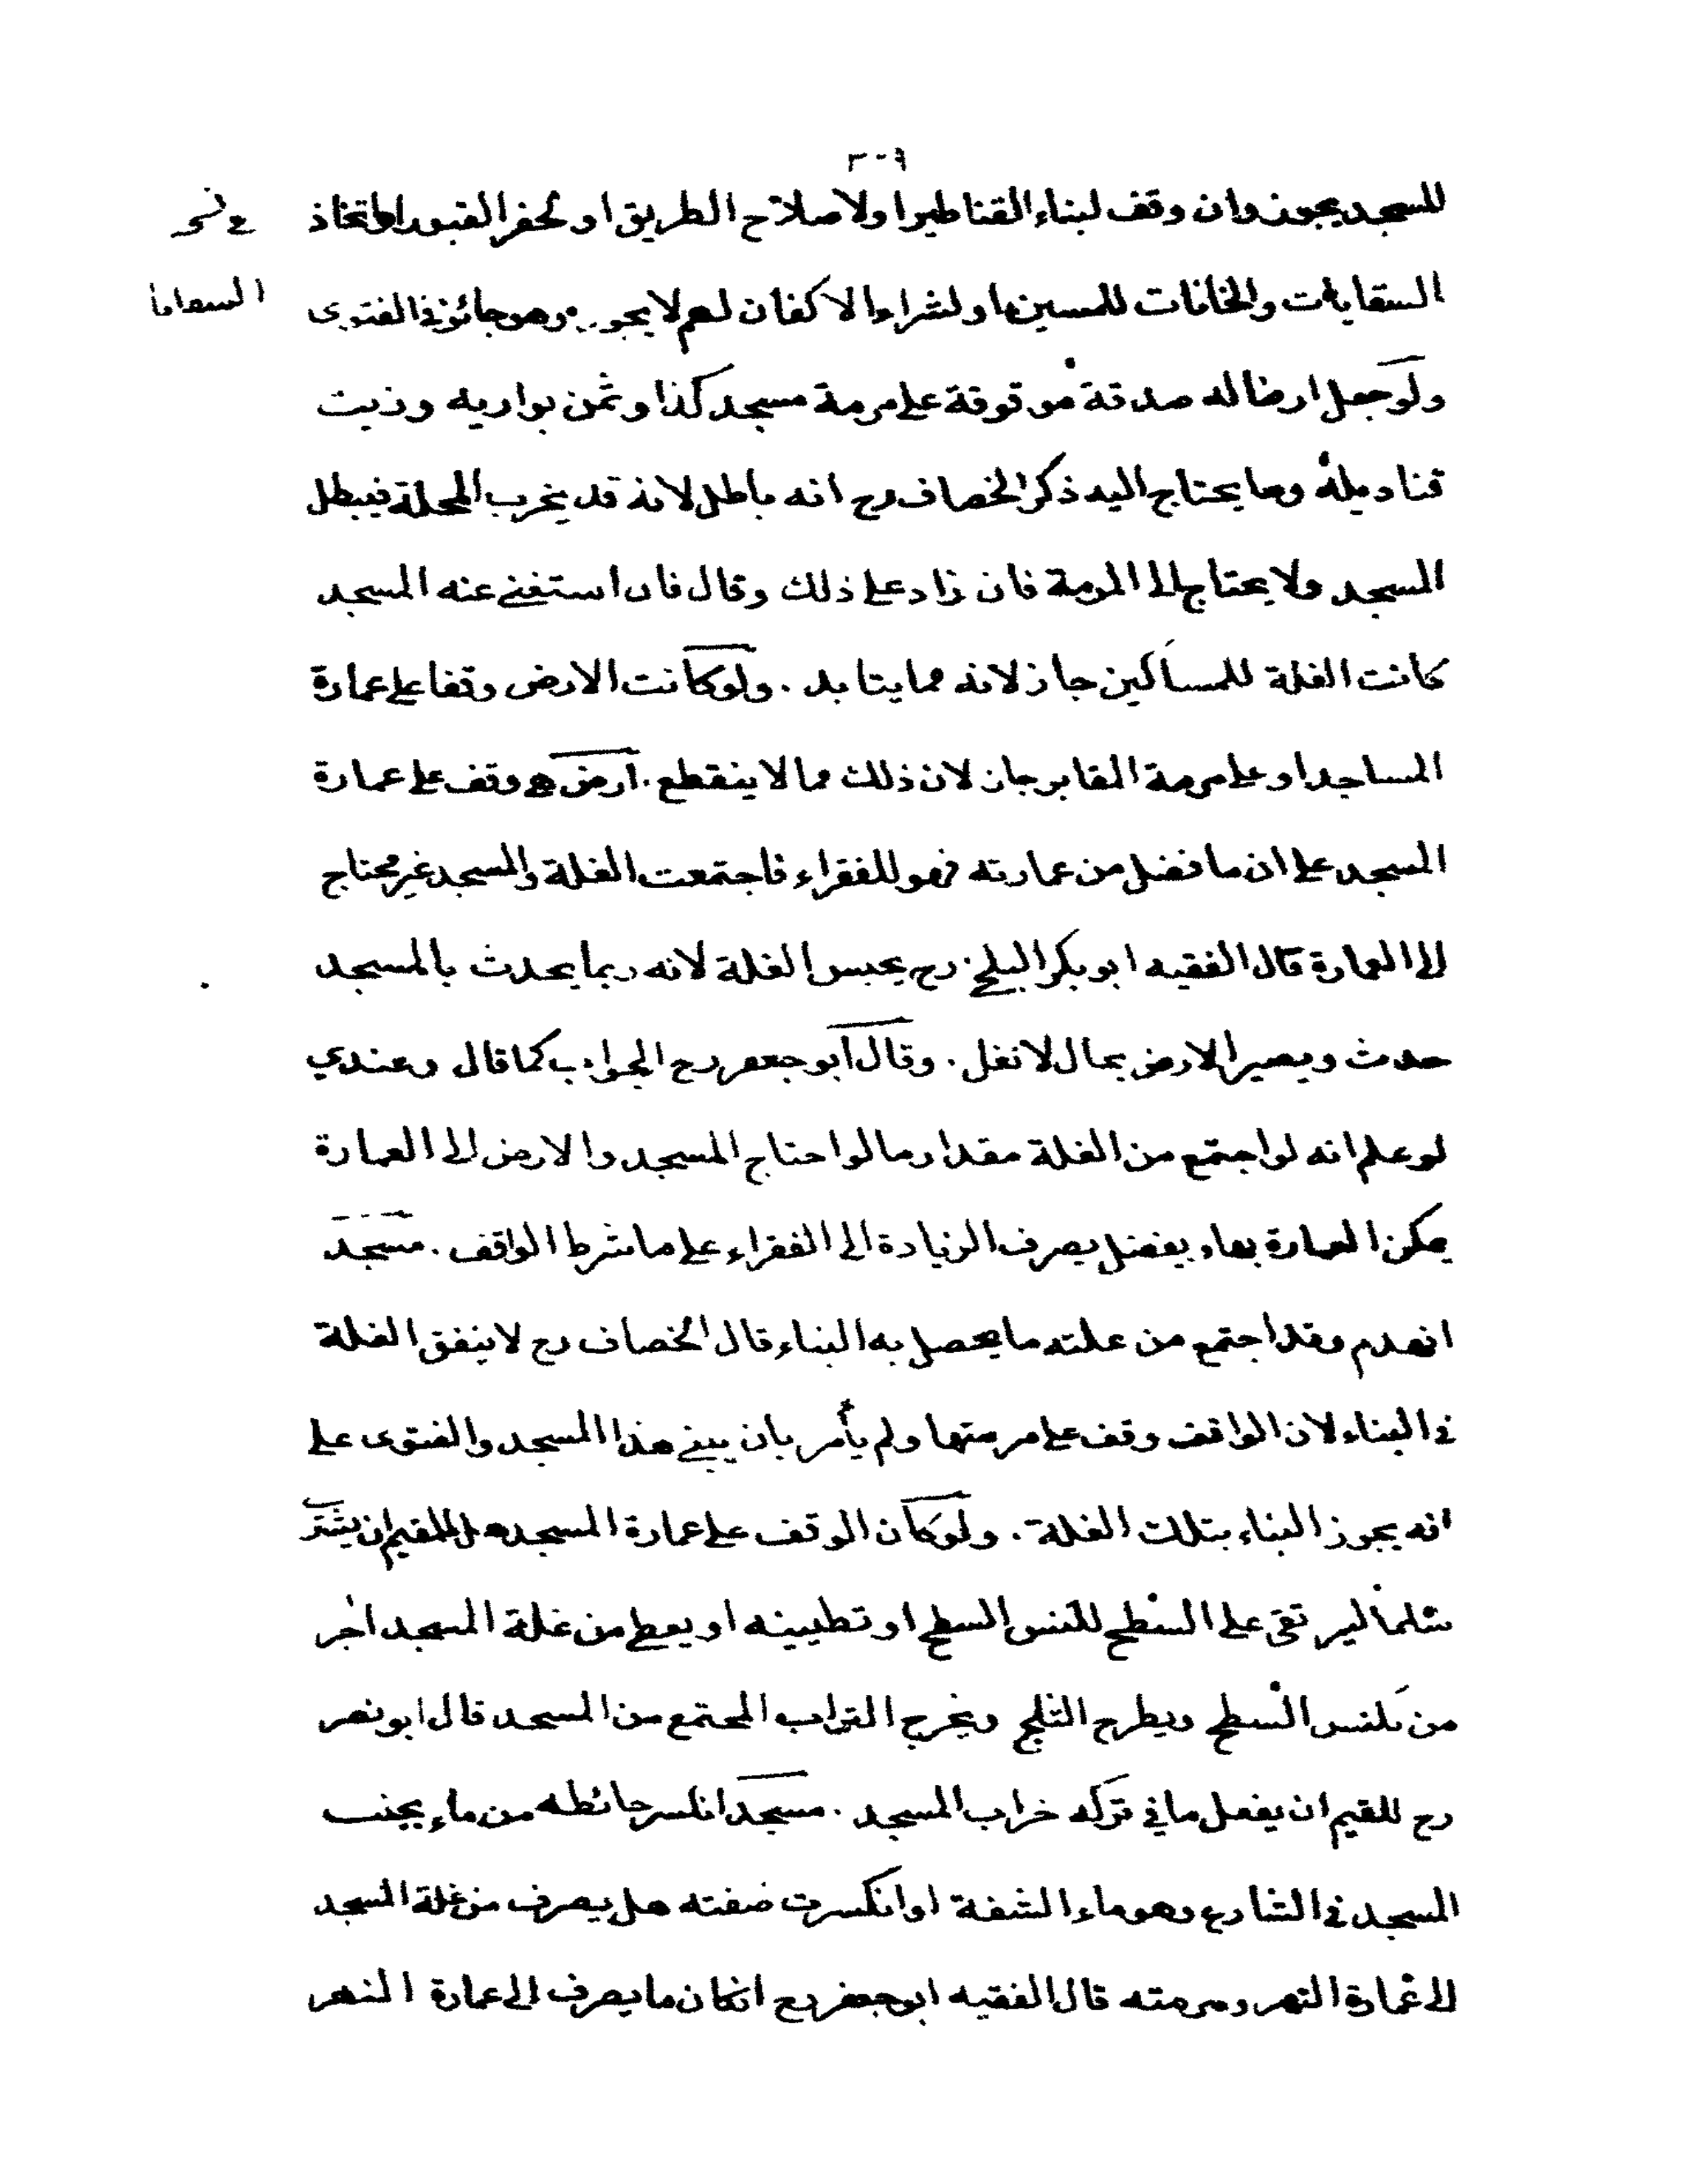 للمسجد يجوز وان وقف لبناء القناطير او لاصلاح الطريق او لحفر القبور او اتخاذ
السقايات والخانات للمسلمين او لشراء الاكفان لهم لا يجوز وهو جائز في الفتوى
ولو جعل ارضا له صدقة موقوفة على مرمة مسجد كذا وثمن بواريه وزيت
قناديله وما يحتاج اليه ذكر الخصاف رح انه باطل لانه قد يخرب المحلة فيبطل
المسجد ولا يحتاج الى المرمة فان زاد على ذلك وقال فان استغنى عنه المسجد
كانت الغلة للمساكين جاز لانه مما يتابد . ولو كانت الارض وقفا على عمارة
المساجد او على مرمة المقابر جاز لان ذلك مما لا ينقطع . ارض هي وقف على عمارة
المسجد على ان ما فضل من عمارته فهو للفقراء فاجتمعت الغلة والمسجد غير محتاج
الى العمارة قال الفقيه ابو بكر البلخي رح يحبس الغلة لانه ربما يحدث بالمسجد
حدث ويصير الارض بحال لا تغل . وقال ابو جعفر رح الجواب كما قال وعندي
لو علم انه لو اجتمع من الغلة مقدار ما لو احتاج المسجد والارض الى العمارة
يمكن العمارة بها ويفضل يصرف الزيادة الى الفقراء على ما شرط الواقف . مسجد
انهدم وقد اجتمع من غلته ما يحصل به البناء قال الخصاف رح لا ينفق الغلة
في البناء لان الواقف وقف على مرمتها ولم يأمر بان يبني هذا المسجد والفتوى على
انه يجوز البناء بتلك الغلة . ولو كان الوقف على عمارة المسجد هل للقيم ان يشتر
سلما ليرتقى على السطح لكنس السطح او تطيينه او يعطى من غلة المسجد اجر
من يكنس السطح ويطرح الثلج ويخرج التراب المجتمع من المسجد قال ابو نصر
رح للقيم ان يفعل ما في تركه خراب المسجد . مسجد انكسر حائطه من ماء بجنب
المسجد في الشارع وهو ماء الشفة او انكسرت ضفته هل يصرف من غلة المسجد
الى عمارة النهر ومرمته قال الفقيه ابو جعفر رح ان كان ما يصرف الى عمارة النهر